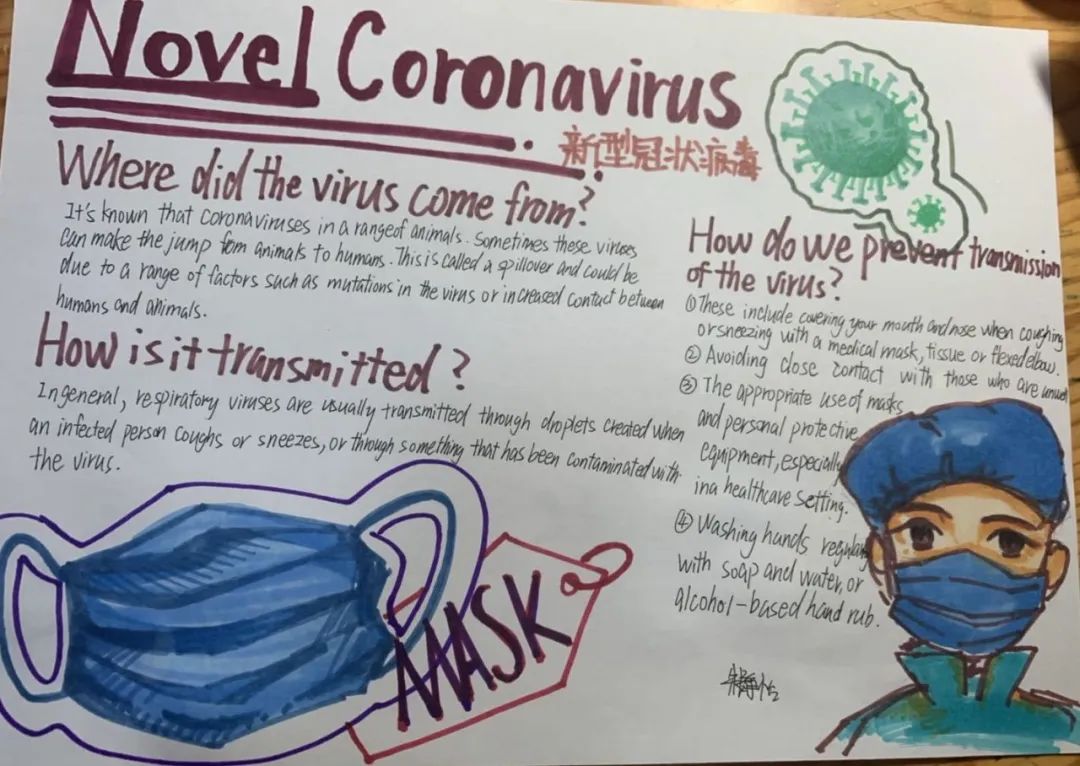 Novel Coronavirus
新型冠状病毒
Where did the virus come from?
It's known that coronaviruses in a range of animals. Sometimes these viruses
can make the jump fom animals to humans. This is called a spillover and could be
due to a range of factors such as mutations in the virus or increased contact between
humans and animals.
How is it transmitted?
In general, respiratory viruses are usually transmitted through droplets created when
an infected person coughs or sneezes, or through something that has been contaminated with
the virus.
MASK
How do we prevent transmission
of the virus?
①These include covering your mouth and nose when coughing
or sneezing with a medical mask, tissue or flexed elbow.
② Avoiding close contact with those who are
③ The appropriate use of masks
and personal protective
equipment, especially
in a healthcare setting.
④ Washing hands
with soap and water, or
alcohol-based hand rub.